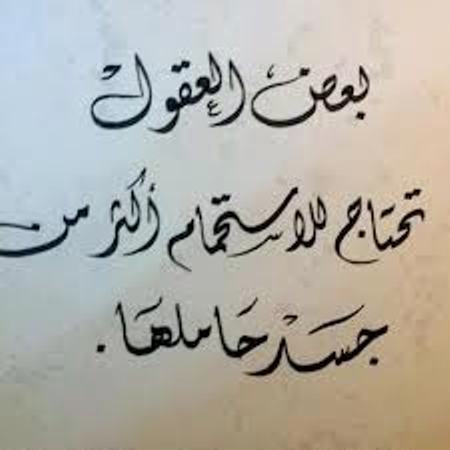 بعض العقول
تحتاج للاستحمام أكثر من
جسد حاملها.